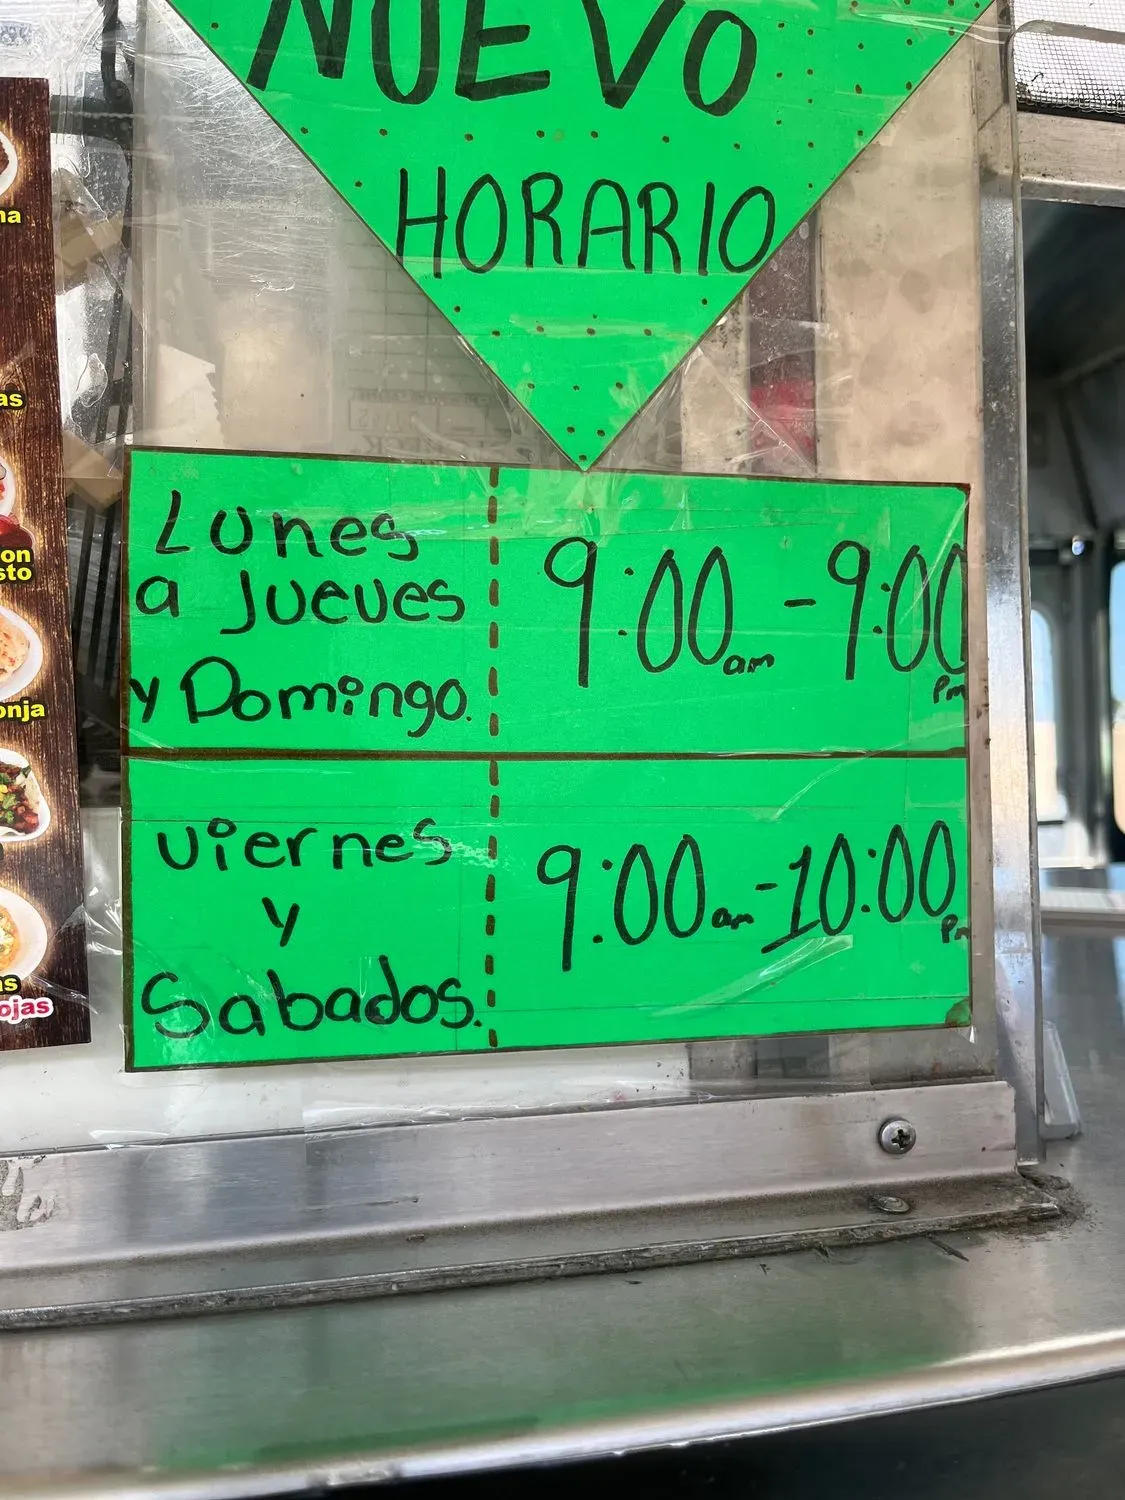 NUEVO
HORARIO
Lunes
a Jueves
y Domingo.
9:00 am - 9:00 pm
viernes
y
Sabados.
9:00 am - 10:00 pm
na
as
on
sto
onja
as
ojas